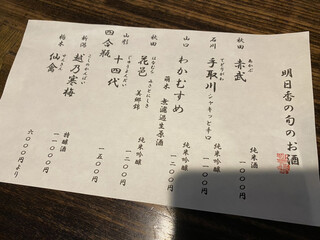 明日香の旬のお酒
秋田 赤武 純米酒 一〇〇〇円
あかぶ
石川 手取川 シャキッと辛口 純米吟醸 一一〇〇円
てどりがわ
山口 わかむすめ 萌木 無濾過生原酒 純米吟醸 一二〇〇円
秋田 花邑 美郷錦 純米吟醸 一二〇〇円
はなむら みさとにしき
山形 十四代 一五〇〇円
じゅうよんだい
四合瓶
新潟 越乃寒梅 特醸酒 一一〇〇〇円
こしのかんばい
栃木 仙禽 六〇〇〇円より
せんきん